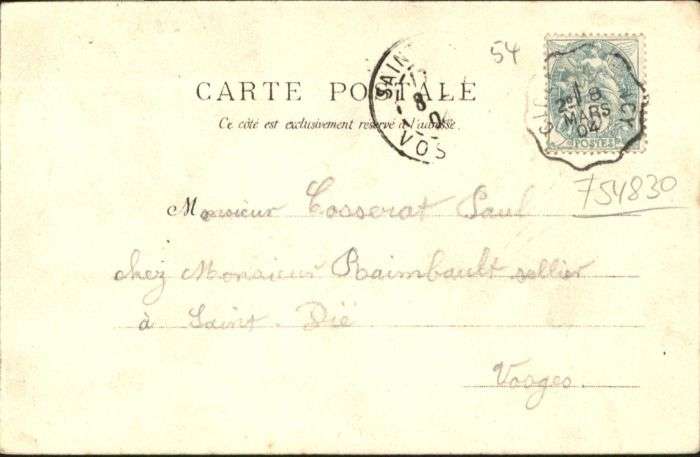 54
CARTE POSTALE
Ce côté est exclusivement réservé à l'adresse.
SAIN
8
0
VOS
2E
8
MARS
04
CY
POSTES
754830
Monsieur Cosserat Paul
chez Monsieur Raimbault sellier
à Saint-Dié
Vosges.